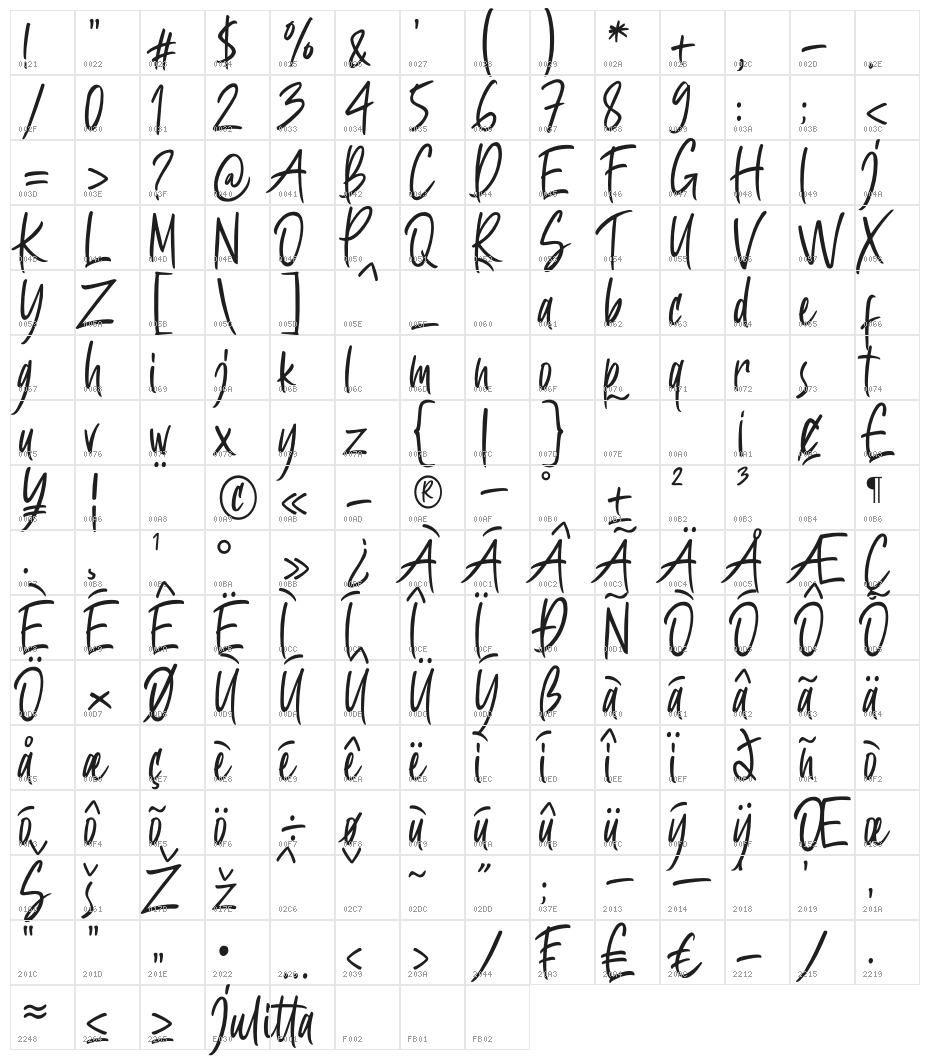 ! " # $ % & ' ( ) * + , - .
0021 0022 0023 0024 0025 0026 0027 0028 0029 002A 002B 002C 002D 002E
/ 0 1 2 3 4 5 6 7 8 9 : ; <
002F 0030 0031 0032 0033 0034 0035 0036 0037 0038 0039 003A 003B 003C
= > ? @ A B C D E F G H I J
003D 003E 003F 0040 0041 0042 0043 0044 0045 0046 0047 0048 0049 004A
K L M N O P Q R S T U V W X
004B 004C 004D 004E 004F 0050 0051 0052 0053 0054 0055 0056 0057 0058
Y Z [ \ ] ^ _ a b c d e f
0059 005A 005B 005C 005D 005E 005F 0060 0061 0062 0063 0064 0065 0066
g h i j k l m n o p q r s t
0067 0068 0069 006A 006B 006C 006D 006E 006F 0070 0071 0072 0073 0074
u v w x y z { | } ~ ¡ ¢ £
0075 0076 0077 0078 0079 007A 007B 007C 007D 007E 00A0 00A1 00A2 00A3
¥ ¦ ¨ © « - ® ¯ ° ± ² ³ ¶
00A5 00A6 00A8 00A9 00AB 00AD 00AE 00AF 00B0 00B1 00B2 00B3 00B4 00B6
· ¸ ¹ º » ¿ À Á Â Ã Ä Å Æ Ç
00B7 00B8 00B9 00BA 00BB 00BF 00C0 00C1 00C2 00C3 00C4 00C5 00C6 00C7
È É Ê Ë Ì Í Î Ï Ð Ñ Ò Ó Ô Õ
00C8 00C9 00CA 00CB 00CC 00CD 00CE 00CF 00D0 00D1 00D2 00D3 00D4 00D5
Ö × Ø Ù Ú Û Ü Ý ß à á â ã ä
00D6 00D7 00D8 00D9 00DA 00DB 00DC 00DD 00DF 00E0 00E1 00E2 00E3 00E4
å æ ç è é ê ë ì í î ï ð ñ ò
00E5 00E6 00E7 00E8 00E9 00EA 00EB 00EC 00ED 00EE 00EF 00F0 00F1 00F2
ó ô õ ö ÷ ø ù ú û ü ý ÿ Œ œ
00F3 00F4 00F5 00F6 00F7 00F8 00F9 00FA 00FB 00FC 00FD 00FF 0152 0153
Š š Ž ž ˆ ˇ ˜ ˝ ; – — ‘ ’ ‚
0160 0161 017D 017E 02C6 02C7 02DC 02DD 037E 2013 2014 2018 2019 201A
“ ” „ • … ‹ › ⁄ ₣ ₤ € − ∕ ∙
201C 201D 201E 2022 2026 2039 203A 2044 20A3 20A4 20AC 2212 2215 2219
≈ ≤ ≥ Julitta
2248 2264 2265 E030 F001 F002 FB01 FB02